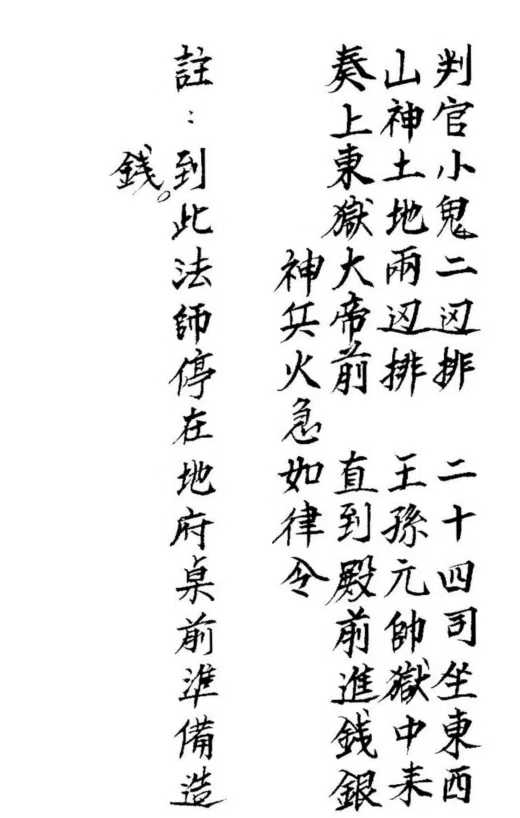 判官小鬼二边排　二十四司坐東西
山神土地兩边排　王孫元帥獄中来
奏上東獄大帝前　直到殿前進銭銀
神兵火急如律令
註：到此法師停在地府桌前準備造
銭。